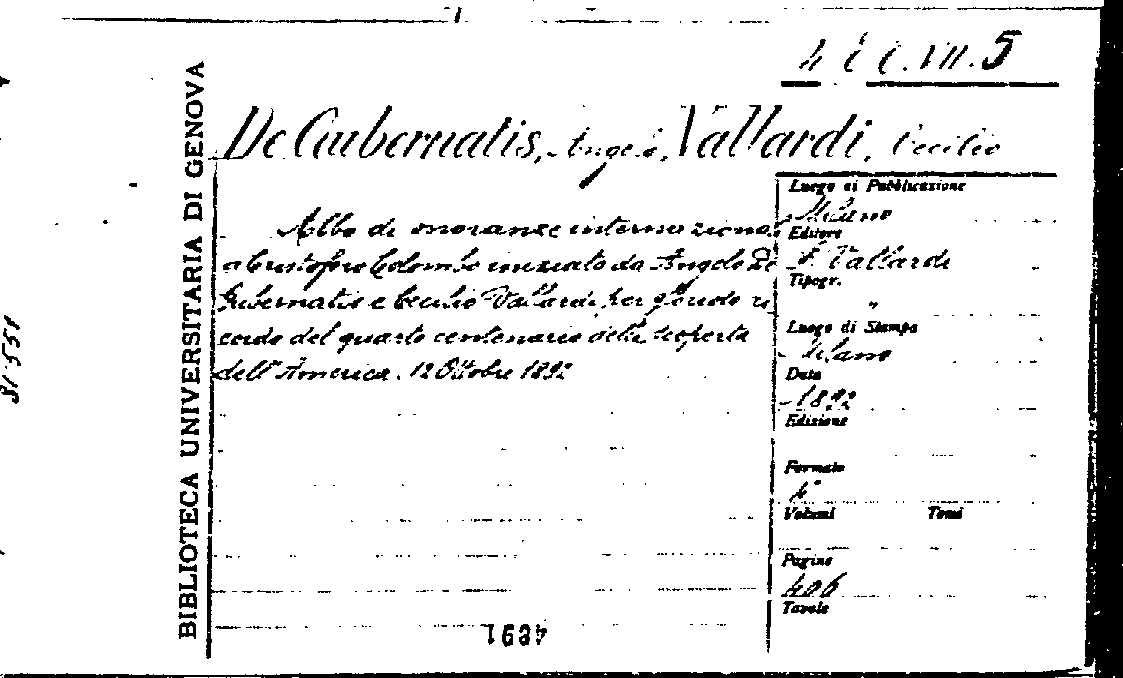 4 C C.VII.5
BIBLIOTECA UNIVERSITARIA DI GENOVA
De Gubernatis, Angelo, Vallardi, Cecilio
Albo di onoranze internaziona
a Cristoforo Colombo iniziato da Angelo De
Gubernatis e Cecilio Vallardi, per ri
cordo del quarto centenario della scoperta
dell'America. 12 Ottobre 1892
Luogo di Pubblicazione
Milano
Editore
F. Vallardi
Tipogr.
"
Luogo di Stampa
Milano
Data
1892
Edizione
Formato
4°
Volumi Tomi
Pagine
406
Tavole
4891